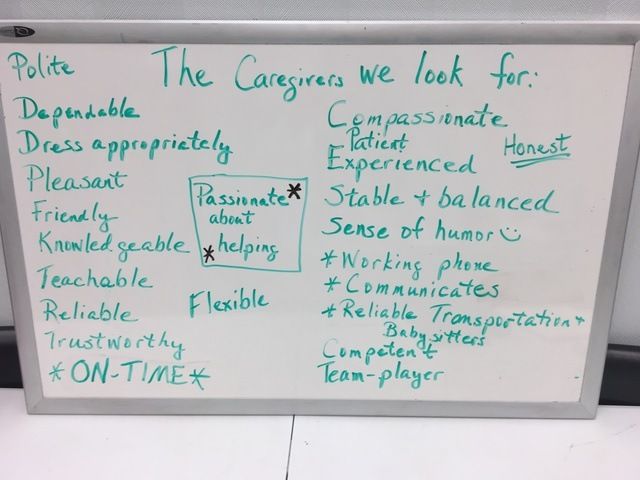 The Caregivers we look for:
Polite
Dependable
Dress appropriately
Pleasant
Friendly
Knowledgeable
Teachable
Reliable
Trustworthy
*ON-TIME*
Passionate*
about
*helping
Flexible
Compassionate
Patient
Honest
Experienced
Stable + balanced
Sense of humor
*Working phone
*Communicates
*Reliable Transportation +
Babysitters
Competent
Team-player